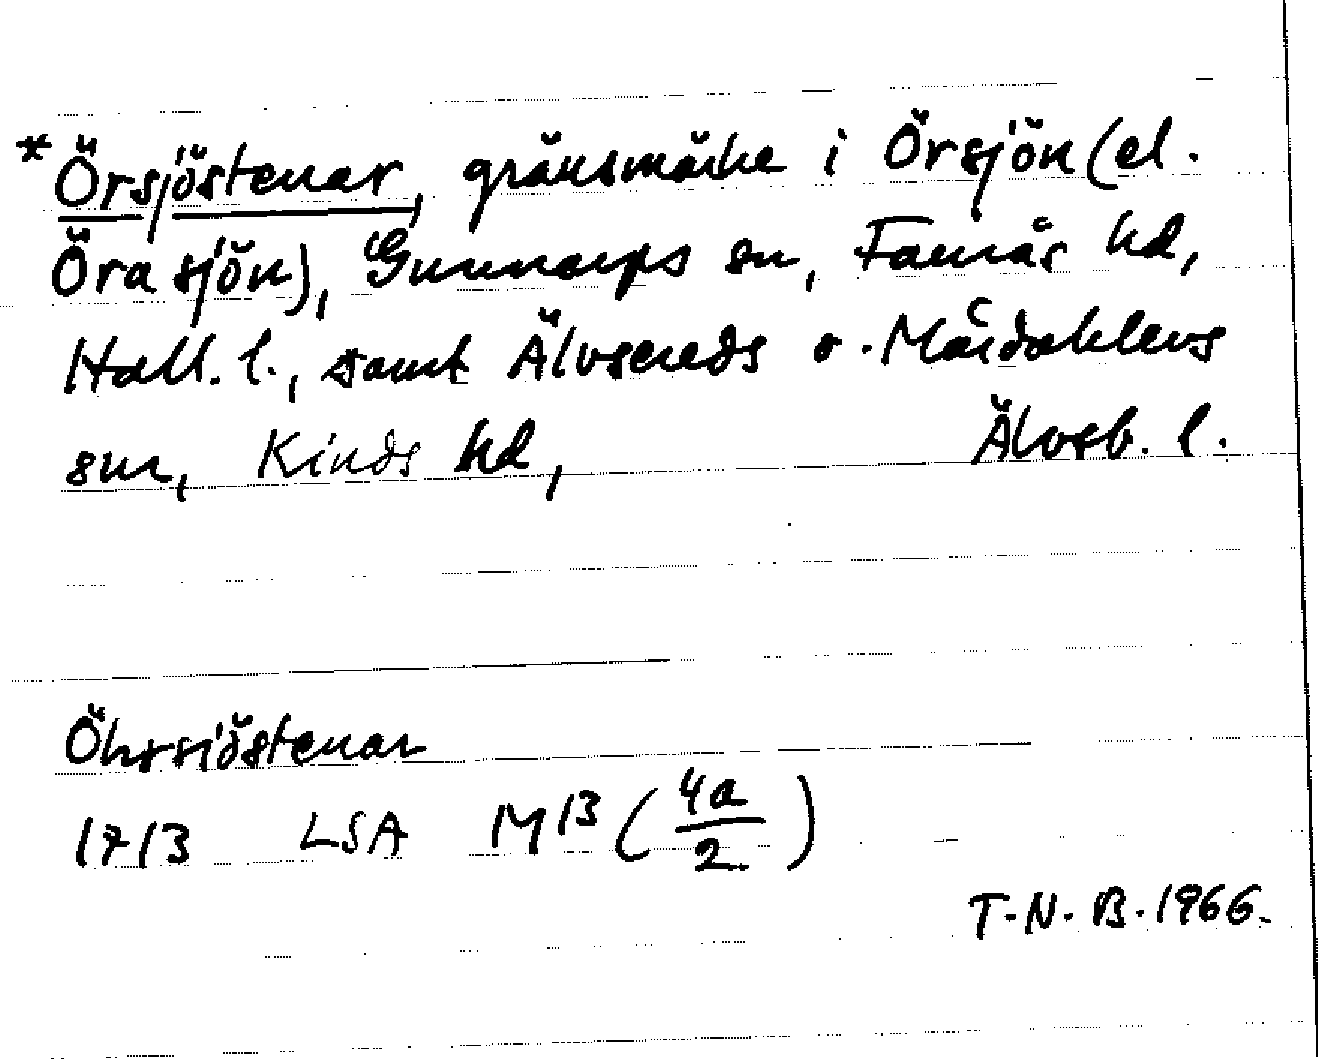 *Örsjöstenar, gränsmärke i Örsjön (el.
Örasjön), Gunnarps sn, Faurås hd,
Hall. l., samt Älvsereds o. Mårdaklevs
snr, Kinds hd, Älvsb. l.
Öhrsiöstenar
1713 LSA M13 (4a/2)
T.N.B. 1966.